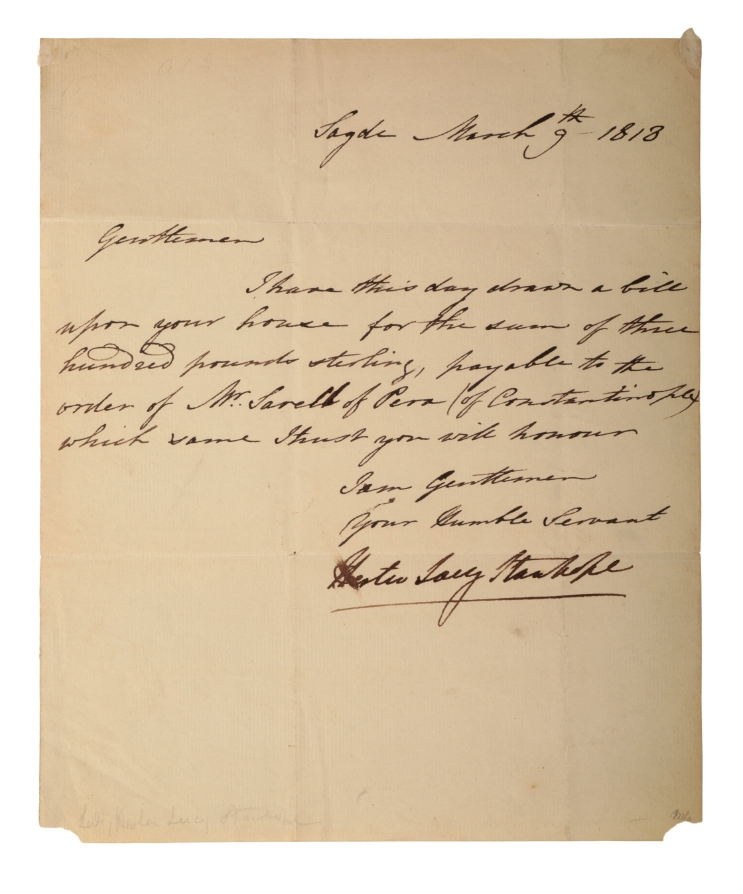 Sayde March 9th 1818
Gentlemen
I have this day drawn a bill
upon your house for the sum of three
hundred pounds sterling, payable to the
order of Mr. Sarell of Pera (of Constantinople)
which same I trust you will honour
I am Gentlemen
Your Humble Servant
Hester Lucy Stanhope
Lady Hester Lucy Stanhope